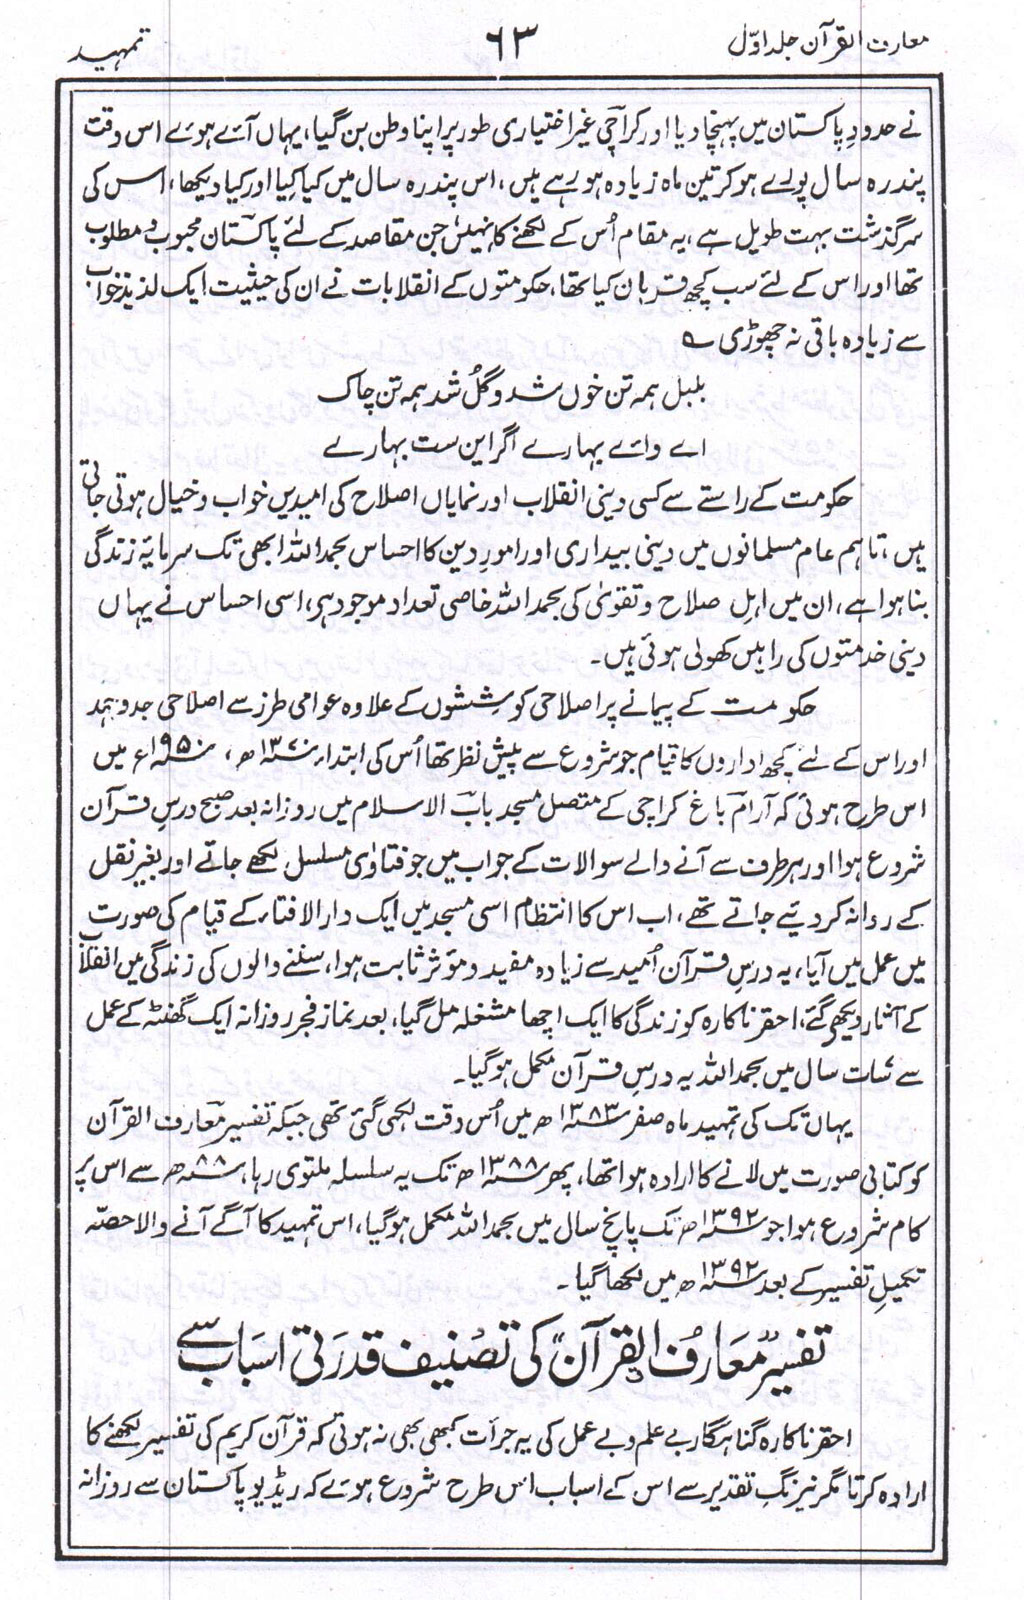 معارف القرآن جلد اوّل
۶۳
تمہید
نے حدودِ پاکستان میں پہنچا دیا اور کراچی غیر اختیاری طور پر اپنا وطن بن گیا، یہاں آئے ہوئے اس وقت
پندرہ سال پورے ہو کر تین ماہ زیادہ ہو رہے ہیں، اس پندرہ سال میں کیا کِیا اور کیا دیکھا، اس کی
سرگذشت بہت طویل ہے، یہ مقام اُس کے لکھنے کا نہیں، جن مقاصد کے لئے پاکستان محبوب و مطلوب
تھا اور اس کے لئے سب کچھ قربان کیا تھا، حکومتوں کے انقلابات نے ان کی حیثیت ایک لذیذ خواب
سے زیادہ باقی نہ چھوڑی ؎
بلبل ہمہ تن خوں شد و گُل شد ہمہ تن چاک
اے وائے بہارے اگر این ست بہارے
حکومت کے راستے سے کسی دینی انقلاب اور نمایاں اصلاح کی امیدیں خواب و خیال ہوتی جاتی
ہیں، تاہم عام مسلمانوں میں دینی بیداری اور امورِ دین کا احساس بحمد اللہ ابھی تک سرمایۂ زندگی
بنا ہوا ہے، ان میں اہلِ صلاح و تقویٰ کی بحمد اللہ خاصی تعداد موجود ہی، اسی احساس نے یہاں
دینی خدمتوں کی راہیں کھولی ہوئی ہیں۔
حکومت کے پیمانے پر اصلاحی کوششوں کے علاوہ عوامی طرز سے اصلاحی جدوجہد
اور اس کے لئے کچھ اداروں کا قیام جو شروع سے پیش نظر تھا اُس کی ابتداء ۱۳۷۰ھ، ۱۹۵۰ء میں
اس طرح ہوئی کہ آرام باغ کراچی کے متصل مسجد باب الاسلام میں روزانہ بعد صبح درسِ قرآن
شروع ہوا اور ہر طرف سے آنے والے سوالات کے جواب میں جو فتاوٰی مسلسل لکھے جاتے اور بغیر نقل
کے روانہ کر دیئے جاتے تھے، اب اس کا انتظام اسی مسجد میں ایک دار الافتاء کے قیام کی صورت
میں عمل میں آیا، یہ درسِ قرآن اُمید سے زیادہ مفید و مؤثر ثابت ہوا، سننے والوں کی زندگی میں انقلاب
کے آثار دیکھے گئے، احقر ناکارہ کو زندگی کا ایک اچھا مشغلہ مل گیا، بعد نماز فجر روزانہ ایک گھنٹہ کے عمل
سے سات سال میں بحمد اللہ یہ درسِ قرآن مکمل ہو گیا۔
یہاں تک کی تمہید ماہ صفر ۱۳۸۳ھ میں اُس وقت لکھی گئی تھی جبکہ تفسیر معارف القرآن
کو کتابی صورت میں لانے کا ارادہ ہوا تھا، پھر ۱۳۸۸ھ تک یہ سلسلہ ملتوی رہا، ۸۸ھ سے اس پر
کام شروع ہوا جو ۱۳۹۲ھ تک پانچ سال میں بحمد اللہ مکمل ہو گیا، اس تمہید کا آگے آنے والا حصّہ
تکمیلِ تفسیر کے بعد ۱۳۹۲ھ میں لکھا گیا۔
تفسیر "معارف القرآن" کی تصنیف قدرتی اسباب سے
احقر ناکارہ گناہگار بے علم و بے عمل کی یہ جرأت کبھی بھی نہ ہوتی کہ قرآن کریم کی تفسیر لکھنے کا
ارادہ کرتا مگر نیرنگِ تقدیر سے اس کے اسباب اس طرح شروع ہوئے کہ ریڈیو پاکستان سے روزانہ